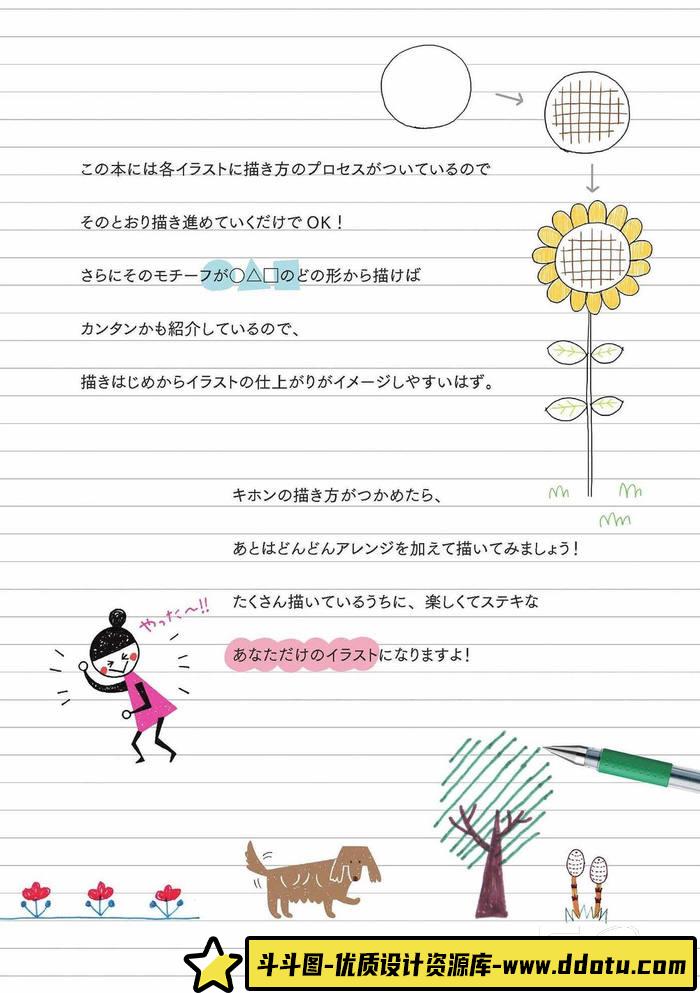 この本には各イラストに描き方のプロセスがついているので
そのとおり描き進めていくだけで OK！
さらにそのモチーフが○△□のどの形から描けば
カンタンかも紹介しているので、
描きはじめからイラストの仕上がりがイメージしやすいはず。
キホンの描き方がつかめたら、
あとはどんどんアレンジを加えて描いてみましょう！
たくさん描いているうちに、楽しくてステキな
やったー〜!!
あなただけのイラストになりますよ！
斗斗图-优质设计资源库-www.ddotu.com